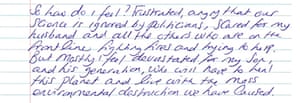 So how do I feel? Frustrated, angry that our
science is ignored by politicians, scared for my
husband and all the others who are on the
front line fighting fires and trying to help.
But mostly I feel devastated for my son,
and his generation, who will have to heal
this planet and live with the mass
environmental destruction we have caused.